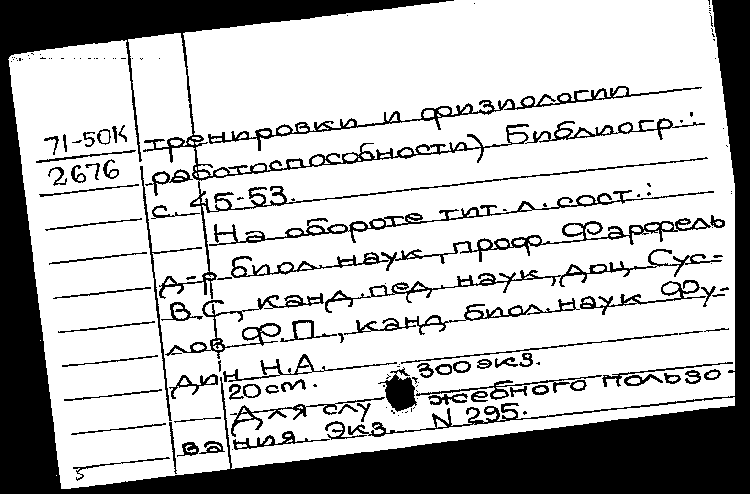 71-50К
2676
тренировки и физиологии
работоспособности) Библиогр.:
с. 45-53.
На обороте тит. л. сост.:
д-р биол. наук, проф. Фарфель
В.С., канд. пед. наук, доц. Сус=
лов Ф.П., канд. биол. наук Фу-
дин Н.А.
20 cm. 300 экз.
Для служебного пользо-
вания. Экз. N 295.
3